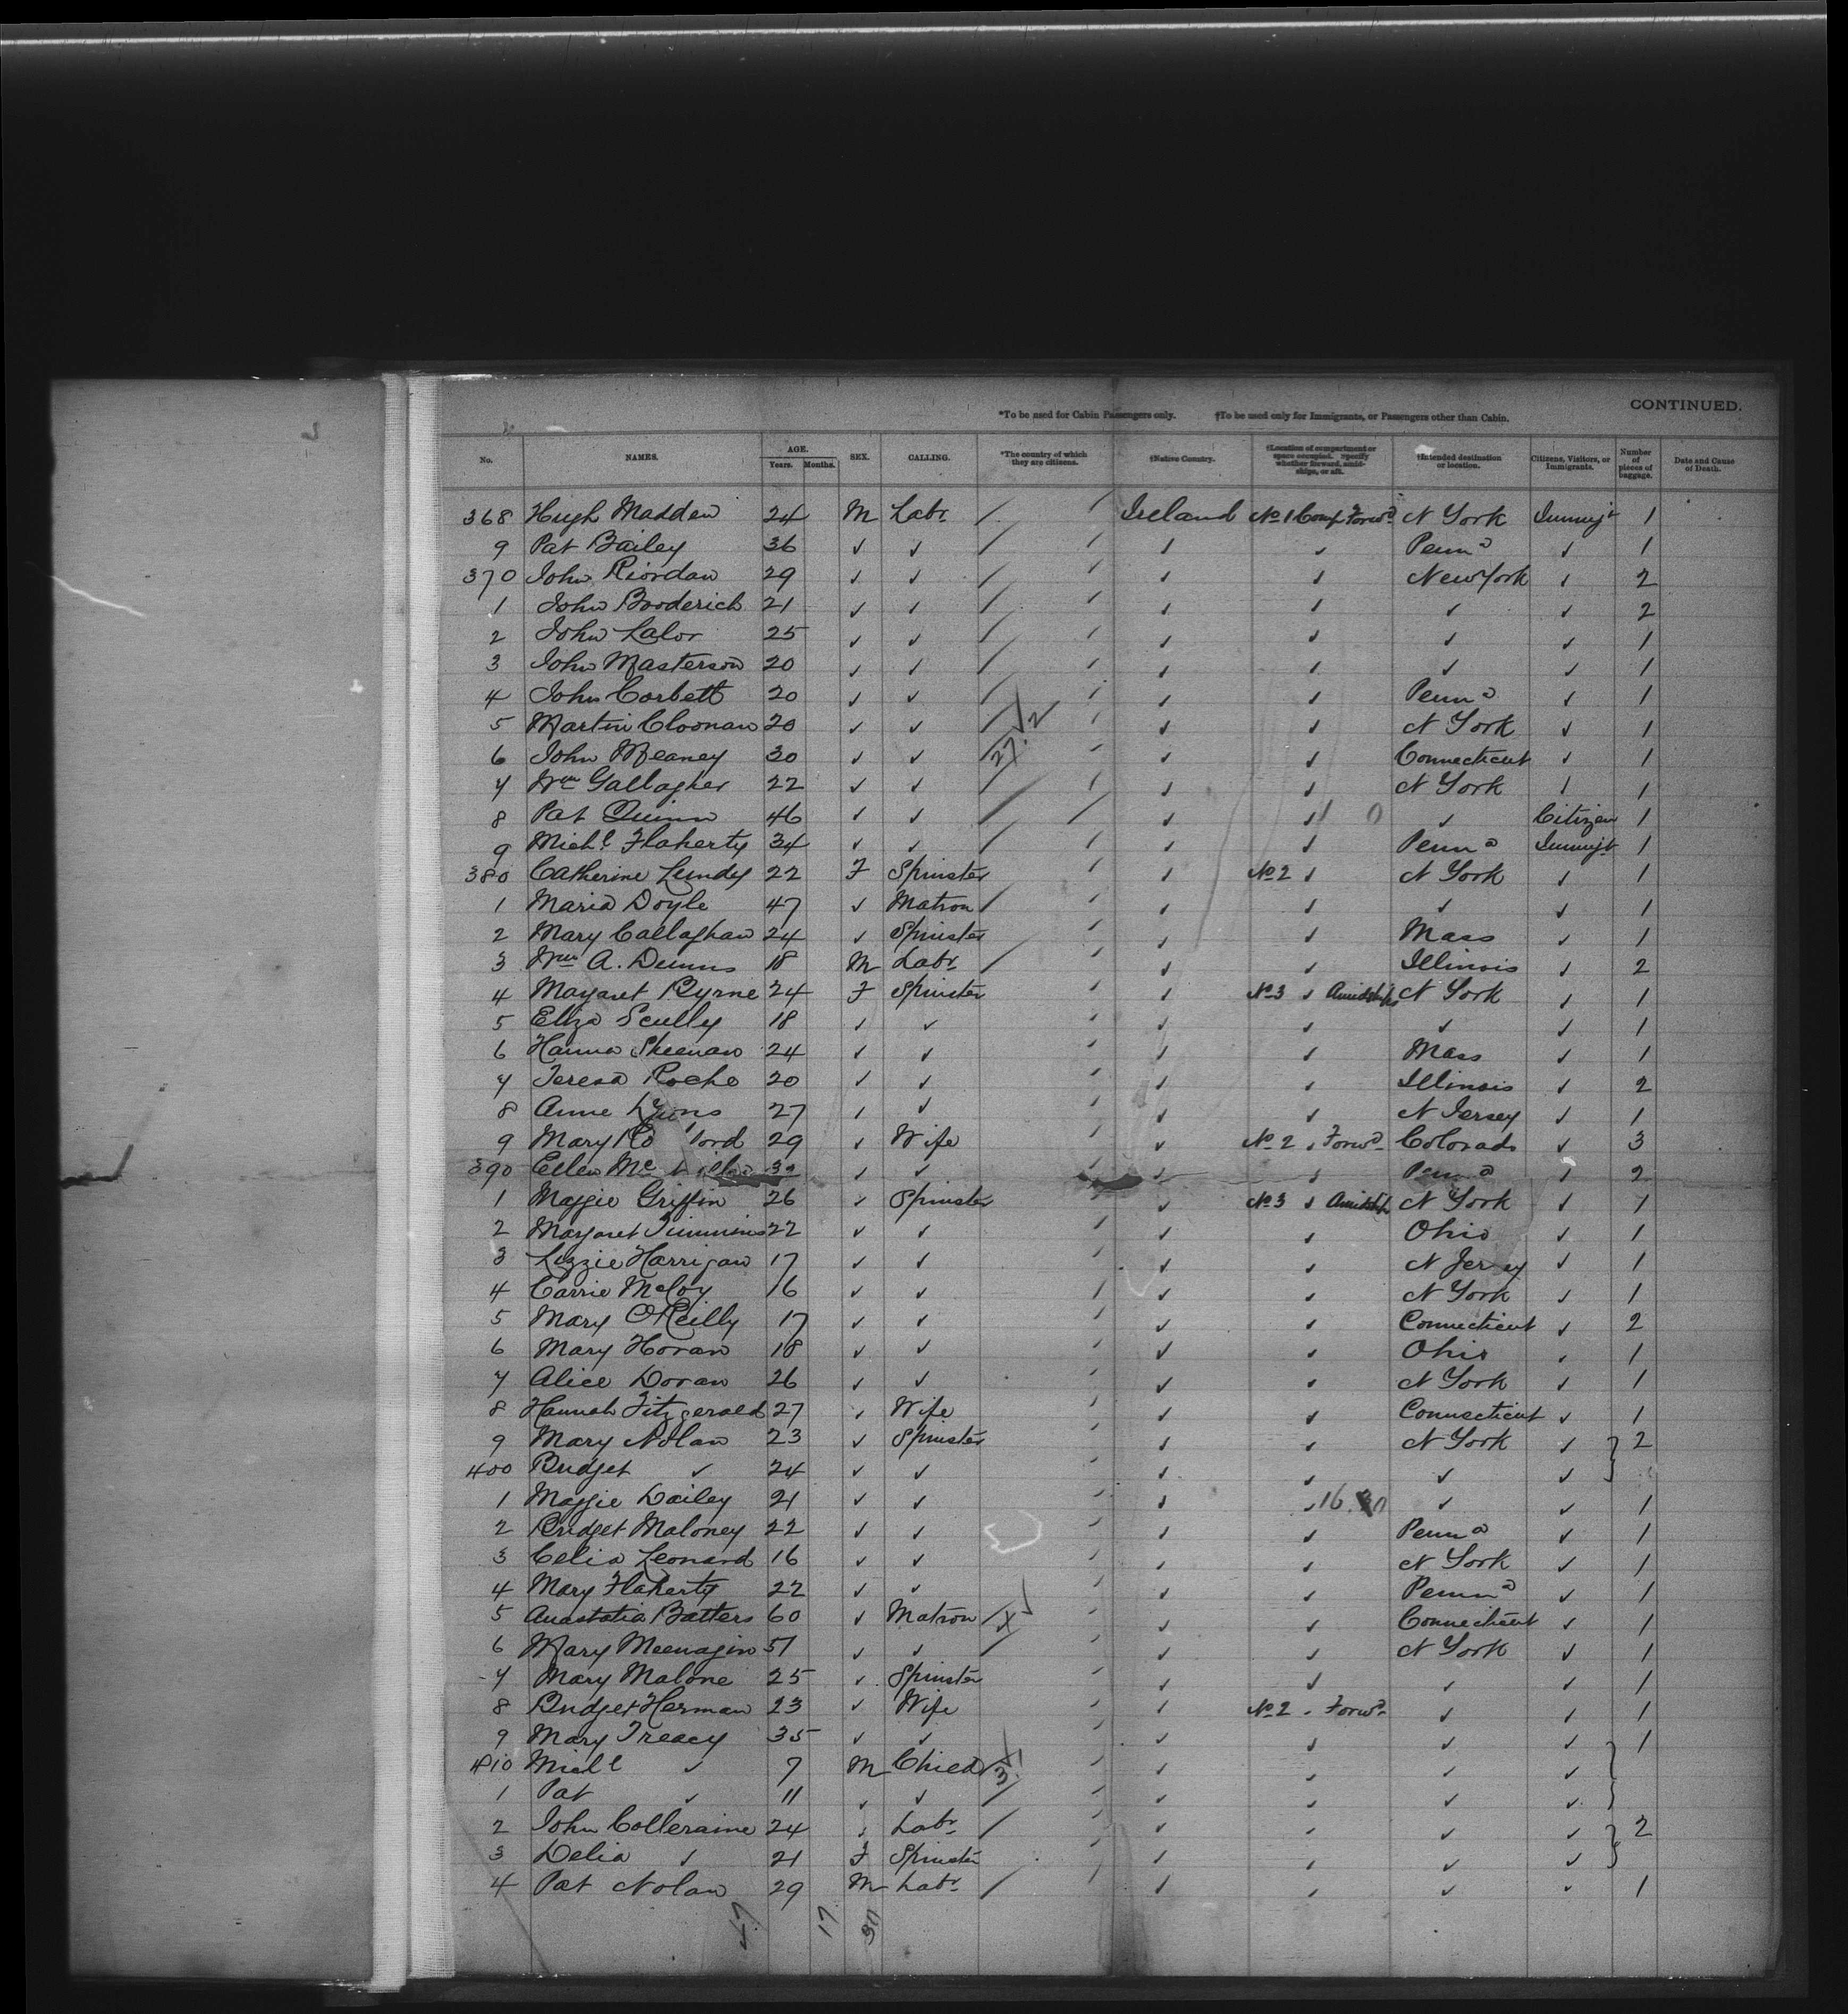 CONTINUED.
*To be used for Cabin Passengers only. †To be used only for Immigrants, or Passengers other than Cabin.
No. NAMES. AGE. Years. Months. SEX. CALLING. *The country of which they are citizens. †Native Country. †Location of compartment or space occupied. specify whether forward, amidships, or aft. †Intended destination or location. Citizens, Visitors, or Immigrants. Number of pieces of baggage. Date and Cause of Death.
368 Hugh Madden 24 M Labr / ′ Ireland No 1 Comp Forwd N York Immigt 1
9 Pat Bailey 36 ✓ ✓ / ′ ✓ ✓ Penna ✓ 1
370 John Riordan 29 ✓ ✓ / ′ ✓ ✓ New York ✓ 2
1 John Broderick 21 ✓ ✓ / ′ ✓ ✓ ✓ ✓ 2
2 John Lalor 25 ✓ ✓ / ′ ✓ ✓ ✓ ✓ 1
3 John Masterson 20 ✓ ✓ / ′ ✓ ✓ ✓ ✓ 1
4 John Corbett 20 ✓ ✓ / ′ ✓ ✓ Penna ✓ 1
5 Martin Cloonan 20 ✓ ✓ / ′ ✓ ✓ N York ✓ 1
6 John Meaney 30 ✓ ✓ / ′ ✓ ✓ Connecticut ✓ 1
7 Wm Gallagher 22 ✓ ✓ / ′ ✓ ✓ N York ✓ 1
8 Pat Quinn 46 ✓ ✓ / / ✓ ✓ ✓ Citizen 1
9 Michl Flaherty 34 ✓ ✓ / ′ ✓ ✓ Penna Immigt 1
380 Catherine Lundy 22 F Spinster ′ ✓ No 2 ✓ N York ✓ 1
1 Maria Doyle 47 ✓ Matron / ′ ✓ ✓ ✓ ✓ 1
2 Mary Callaghan 24 ✓ Spinster ′ ✓ ✓ Mass ✓ 1
3 Wm A. Dunns 18 M Labr / ′ ✓ ✓ Illinois ✓ 2
4 Margaret Byrne 24 F Spinster ′ ✓ No 3 ✓ Amidships N York ✓ 1
5 Eliza Scully 18 ✓ ✓ ′ ✓ ✓ ✓ ✓ 1
6 Hanna Sheenan 24 ✓ ✓ ′ ✓ ✓ Mass ✓ 1
7 Teresa Roche 20 ✓ ✓ ′ ✓ ✓ Illinois ✓ 2
8 Anne Lyons 27 ✓ ✓ ′ ✓ ✓ N Jersey ✓ 1
9 Mary 29 ✓ Wife ′ ✓ No 2 ✓ Forwd Colorado ✓ 3
390 Ellen Mc ✓ ✓ ′ ✓ ✓ Penna ✓ 2
1 Maggie Griffin 26 ✓ Spinster ✓ No 3 ✓ Amidship N York ✓ 1
2 Margaret Timmins 22 ✓ ✓ ′ ✓ ✓ Ohio ✓ 1
3 Lizzie Harrigan 17 ✓ ✓ ′ ✓ ✓ N Jersey ✓ 1
4 Carrie McCoy 16 ✓ ✓ ′ ✓ ✓ N York ✓ 1
5 Mary O'Reilly 17 ✓ ✓ ′ ✓ ✓ Connecticut ✓ 2
6 Mary Horan 18 ✓ ✓ ′ ✓ ✓ Ohio ✓ 1
7 Alice Doran 26 ✓ ✓ ′ ✓ ✓ N York ✓ 1
8 Hannah Fitzgerald 27 ✓ Wife ′ ✓ ✓ Connecticut ✓ 1
9 Mary Nolan 23 ✓ Spinster ′ ✓ ✓ N York ✓ } 2
400 Bridget ✓ 24 ✓ ✓ ′ ✓ ✓ ✓ ✓
1 Maggie Dailey 21 ✓ ✓ ′ ✓ ✓ 16 ✓ ✓ 1
2 Bridget Maloney 22 ✓ ✓ ′ ✓ ✓ Penna ✓ 1
3 Celia Leonard 16 ✓ ✓ ′ ✓ ✓ N York ✓ 1
4 Mary Flaherty 22 ✓ ✓ ′ ✓ ✓ Penna ✓ 1
5 Anastatia Batters 60 ✓ Matron / ′ ✓ ✓ Connecticut ✓ 1
6 Mary Meenagin 51 ✓ ✓ / ′ ✓ ✓ N York ✓ 1
7 Mary Malone 25 ✓ Spinster ′ ✓ ✓ ✓ ✓ 1
8 Bridget Herman 23 ✓ Wife ′ ✓ No 2 ✓ Forwd ✓ ✓ 1
9 Mary Treacy 35 ✓ ✓ ′ ✓ ✓ ✓ ✓ } 1
410 Michl ✓ 7 M Child / ′ ✓ ✓ ✓ ✓
1 Pat ✓ 11 ✓ ✓ / ′ ✓ ✓ ✓ ✓
2 John Colleraine 24 ✓ Labr / ′ ✓ ✓ ✓ ✓ } 2
3 Delia ✓ 21 F Spinster ′ ✓ ✓ ✓ ✓
4 Pat Nolan 29 M Labr / ′ ✓ ✓ ✓ ✓ 1
47 17 30